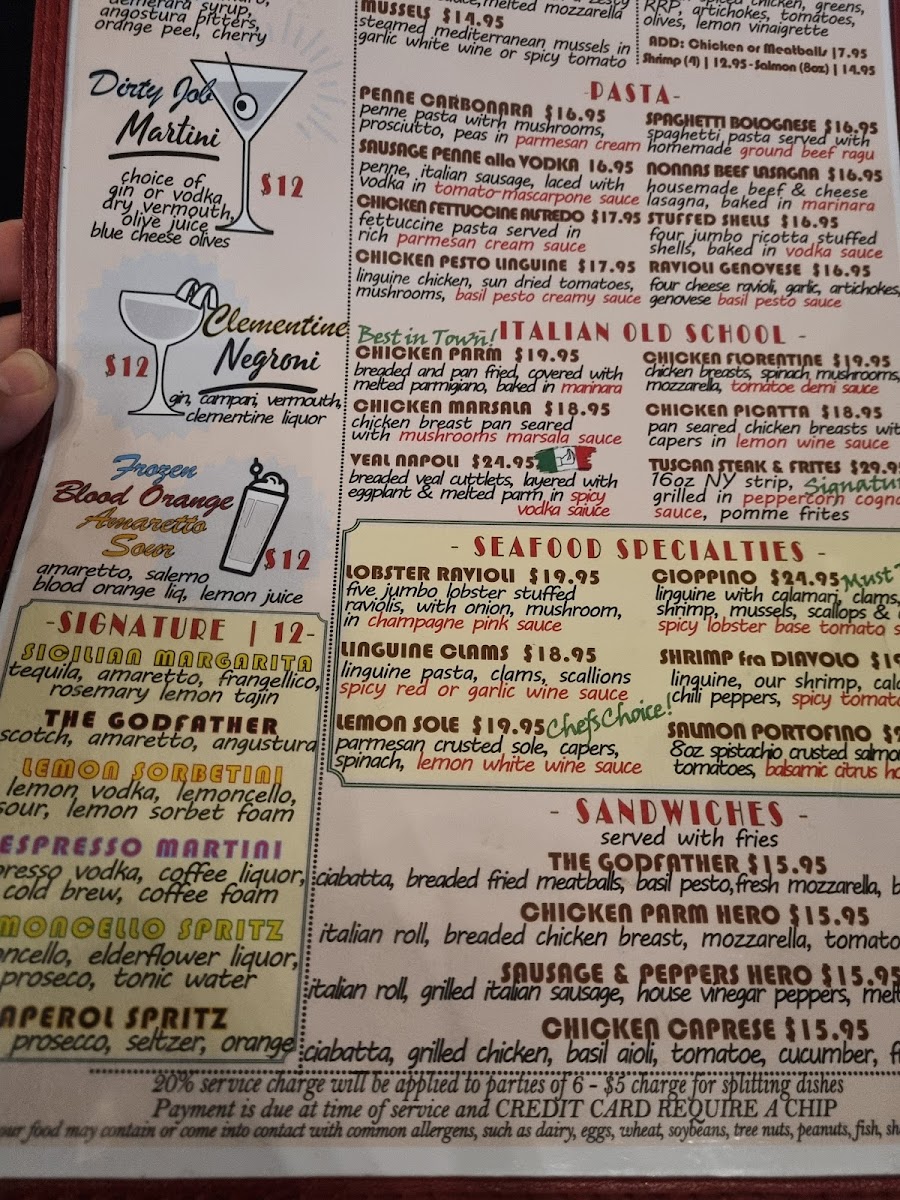 demerara syrup,
angostura bitters,
orange peel, cherry
Dirty Job
Martini
$12
choice of
gin or vodka
dry vermouth,
olive juice
blue cheese olives
Clementine
Negroni
$12
gin, campari, vermouth,
clementine liquor
Frozen
Blood Orange
Amaretto
Sour
$12
amaretto, salerno
blood orange liq, lemon juice
-SIGNATURE | 12-
SICILIAN MARGARITA
tequila, amaretto, frangellico,
rosemary lemon tajin
THE GODFATHER
scotch, amaretto, angustura
LEMON SORBETINI
lemon vodka, lemoncello,
sour, lemon sorbet foam
ESPRESSO MARTINI
presso vodka, coffee liquor,
cold brew, coffee foam
MONCELLO SPRITZ
oncello, elderflower liquor,
proseco, tonic water
APEROL SPRITZ
prosecco, seltzer, orange
melted mozzarella
MUSSELS $14.95
steamed mediterranean mussels in
garlic white wine or spicy tomato
chicken, greens,
artichokes, tomatoes,
olives, lemon vinaigrette
ADD: Chicken or Meatballs |7.95
Shrimp (4) | 12.95-Salmon (8oz) | 14.95
-PASTA-
PENNE CARBONARA $16.95
penne pasta witrh mushrooms,
prosciutto, peas in parmesan cream
SAUSAGE PENNE alla VODKA 16.95
penne, italian sausage, laced with
vodka in tomato-mascarpone sauce
CHICKEN FETTUCCINE ALFREDO $17.95
fettuccine pasta served in
rich parmesan cream sauce
CHICKEN PESTO LINGUINE $17.95
linguine chicken, sun dried tomatoes,
mushrooms, basil pesto creamy sauce
SPAGHETTI BOLOGNESE $16.95
spaghetti pasta served with
homemade ground beef ragu
NONNAS BEEF LASAGNA $16.95
housemade beef & cheese
lasagna, baked in marinara
STUFFED SHELLS $16.95
four jumbo ricotta stuffed
shells, baked in vodka sauce
RAVIOLI GENOVESE $16.95
four cheese ravioli, garlic, artichokes,
genovese basil pesto sauce
Best in Town! ITALIAN OLD SCHOOL -
CHICKEN PARM $19.95
breaded and pan fried, covered with
melted parmigiano, baked in marinara
CHICKEN MARSALA $18.95
chicken breast pan seared
with mushrooms marsala sauce
VEAL NAPOLI $24.95
breaded veal cuttlets, layered with
eggplant & melted parm in spicy
vodka saiuce
CHICKEN FLORENTINE $19.95
chicken breasts, spinach, mushrooms,
mozzarella, tomatoe demi sauce
CHICKEN PICATTA $18.95
pan seared chicken breasts wit
capers in lemon wine sauce
TUSCAN STEAK & FRITES $29.9
16oz NY strip, Signatu
grilled in peppercorn cogna
sauce, pomme frites
- SEAFOOD SPECIALTIES -
LOBSTER RAVIOLI $19.95
five jumbo lobster stuffed
raviolis, with onion, mushroom,
in champagne pink sauce
LINGUINE CLAMS $18.95
linguine pasta, clams, scallions
spicy red or garlic wine sauce
LEMON SOLE $19.95 Chefs Choice!
parmesan crusted sole, capers,
spinach, lemon white wine sauce
CIOPPINO $24.95 Must
linguine with calamari, clams,
shrimp, mussels, scallops &
spicy lobster base tomato s
SHRIMP fra DIAVOLO $19
linguine, our shrimp, cala
chili peppers, spicy tomato
SALMON PORTOFINO $2
8oz spistachio crusted salmo
tomatoes, balsamic citrus ho
- SANDWICHES -
served with fries
THE GODFATHER $15.95
ciabatta, breaded fried meatballs, basil pesto, fresh mozzarella, b
CHICKEN PARM HERO $15.95
italian roll, breaded chicken breast, mozzarella, tomato
SAUSAGE & PEPPERS HERO $15.95
italian roll, grilled italian sausage, house vinegar peppers, melt
CHICKEN CAPRESE $15.95
ciabatta, grilled chicken, basil aioli, tomatoe, cucumber, f
20% service charge will be applied to parties of 6 - $5 charge for splitting dishes
Payment is due at time of service and CREDIT CARD REQUIRE A CHIP
our food may contain or come into contact with common allergens, such as dairy, eggs, wheat, soybeans, tree nuts, peanuts, fish, sh